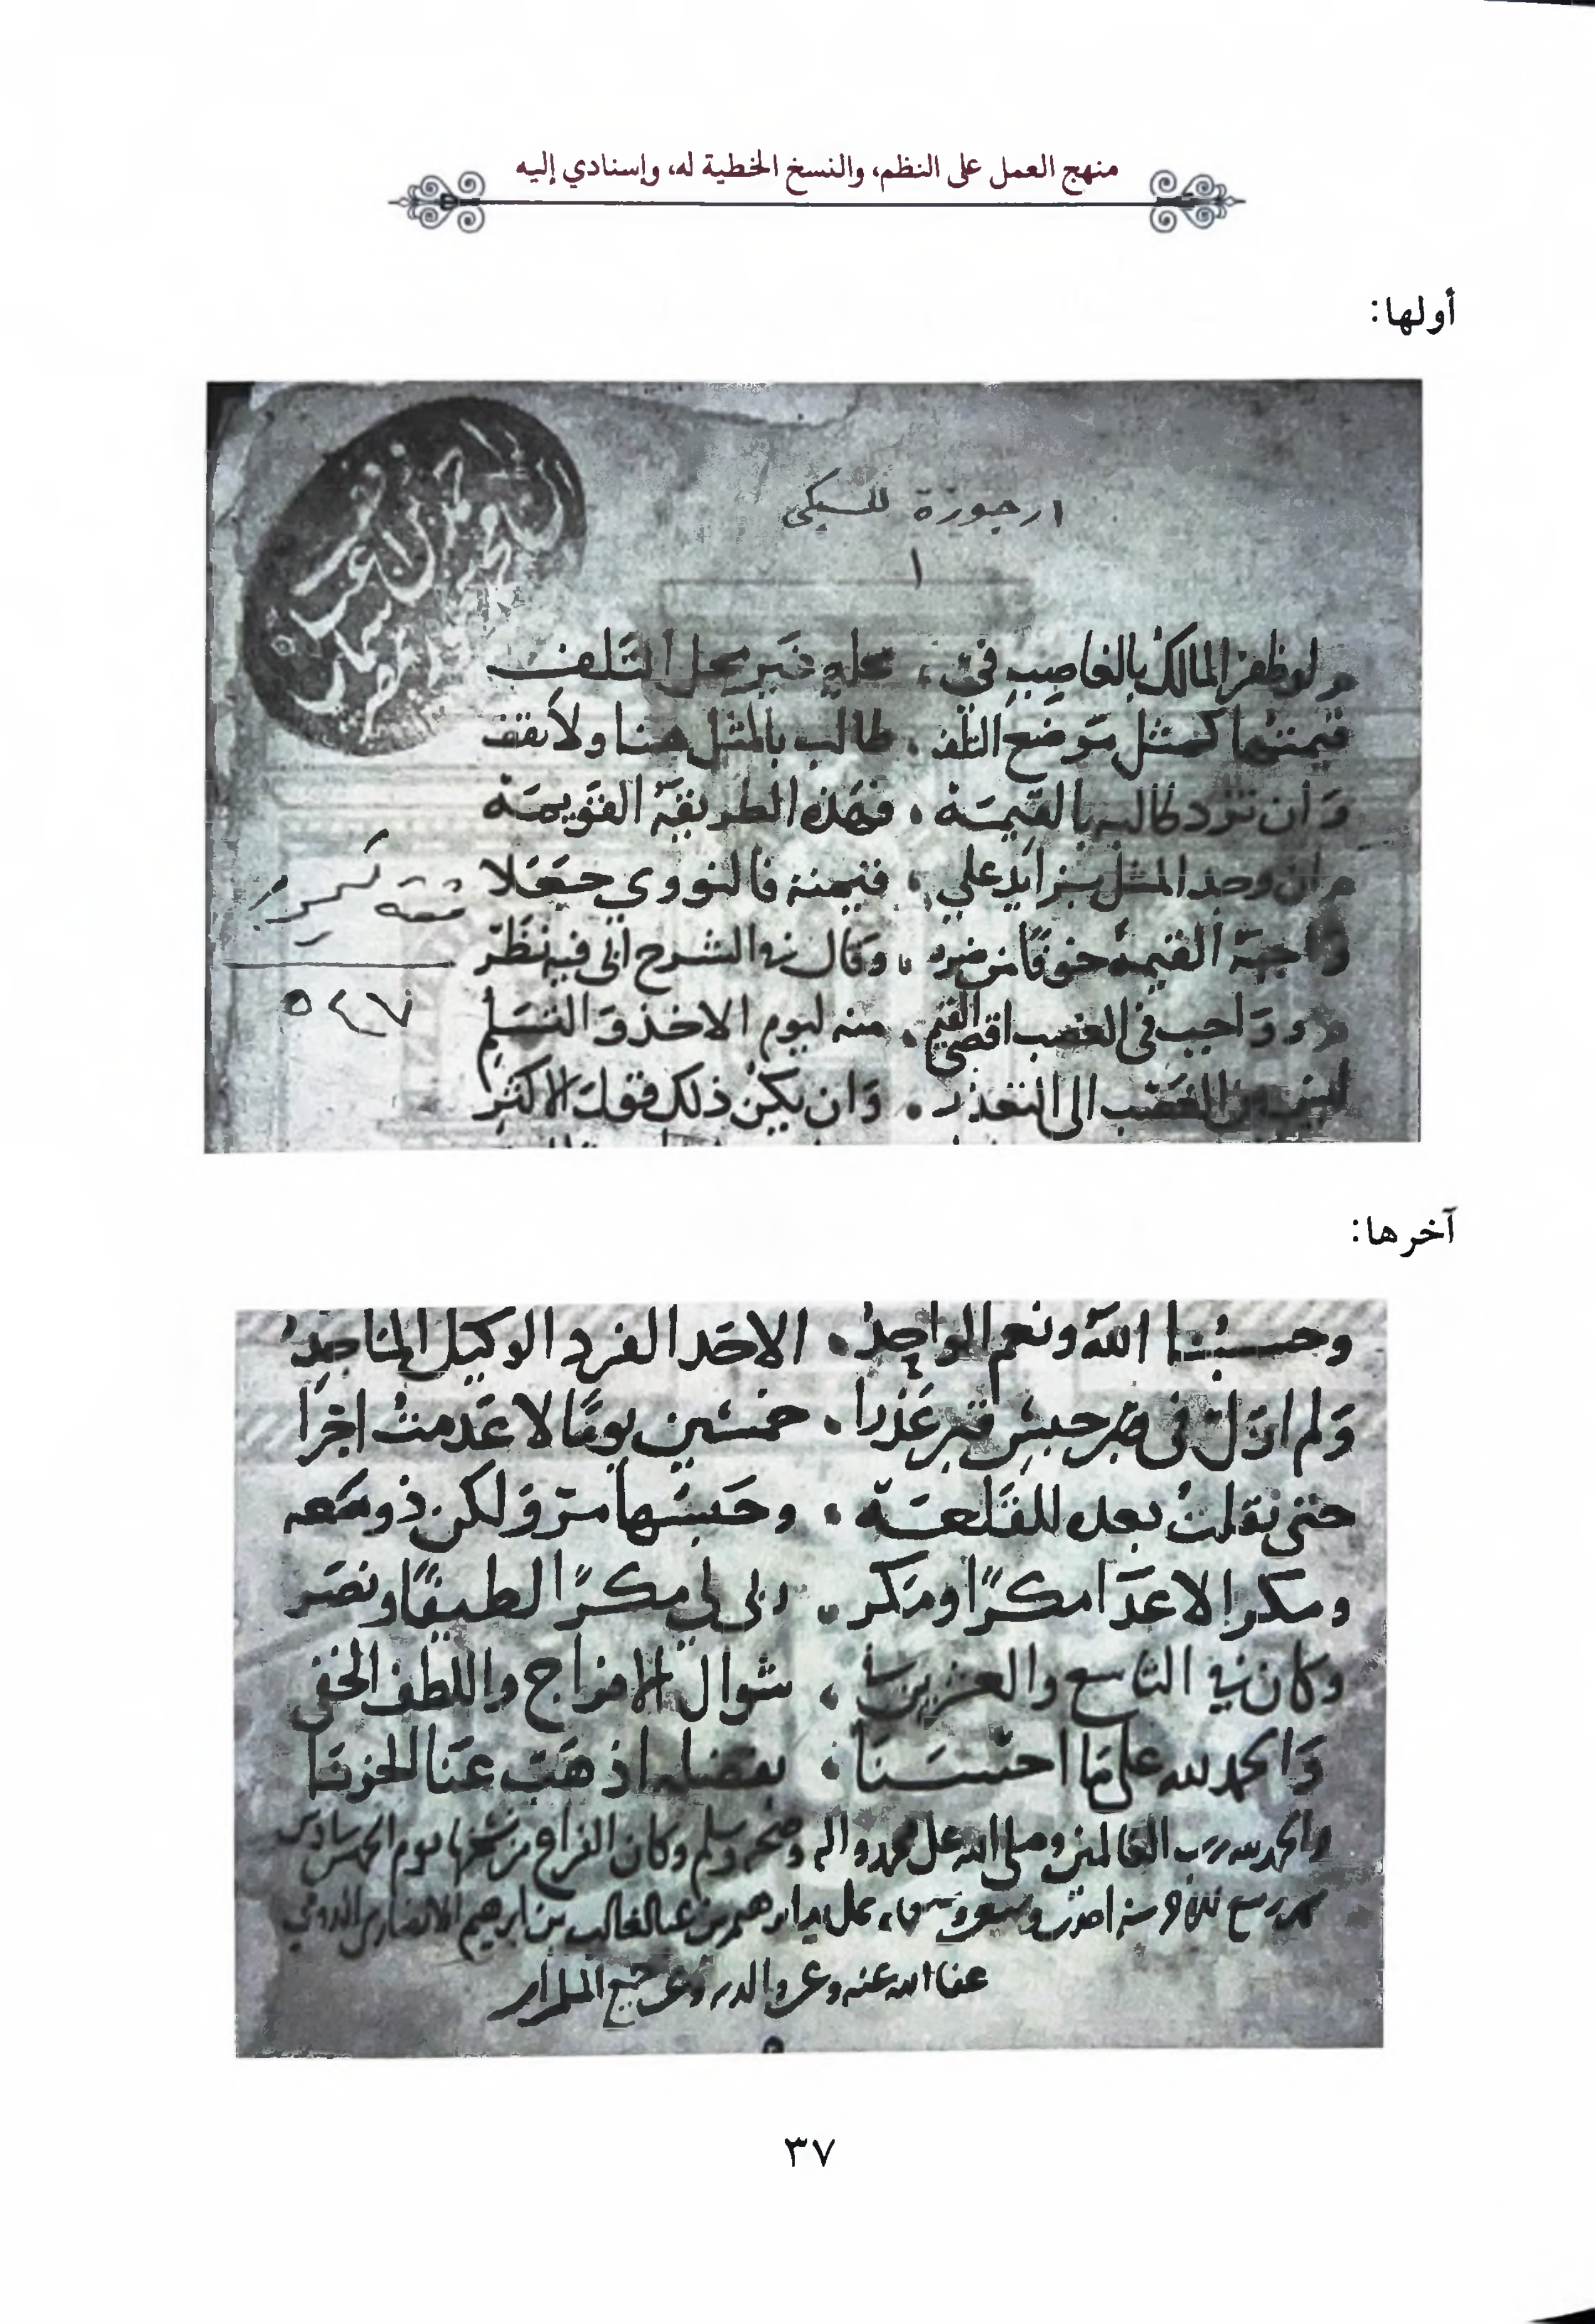 منهج العمل على النظم، والنسخ الخطية له، وإسنادي إليه
أولها:
ارجوزة للسبكي
١
لو ظفر المالك بالغاصب في، محله غير محل التلف
قيمتها كمثل موضع التلف، طالب بالمثل هنا ولا تقف
وَان ترد طالب بالقيمَة، فهذه الطريقة القويمَة
وان وجد المثل بزايد على، قيمته فالنووي جعلا
القيمة خوفًا من ضرر، وقال في الشرح أبي فيه نظر
وَوَاجب في الغصب اقصى القيم، منه ليوم الاخذ وَالتسلم
الغصب الى التعذر، وَان يكن ذلك فقول الاكثر
آخرها:
وحسبُنا اللهُ ونعم الواحدُ، الاحَد الفرد الوكيل الماجدُ
وَلم ازل في حبس عذرا، خمسين يومًا لا عَدمتُ اجرَا
حتى نقلتُ بعده للقَلعَة، وحَبسها مَعه
ومكر الاعدَا مكرًا ومَكر، لي مكرًا لطيفًا ونصَر
وكان في التاسع والعشرين، شوال الافراج واللطف الخفي
وَالحمد لله على مَا احسَنَا، بفضله اذهَبَ عَنا الحزنَا
والحمد لله رب العالمين وصلى الله على محمد واله وصحبه وسلم وكان الفراغ من نسخها يوم الخميس سادس
سنة احدى وسبعين ابرهيم بن عبد الغالب بن ابرهيم الانصاري
عفا الله عنه وعن والديه وعن جميع
٣٧